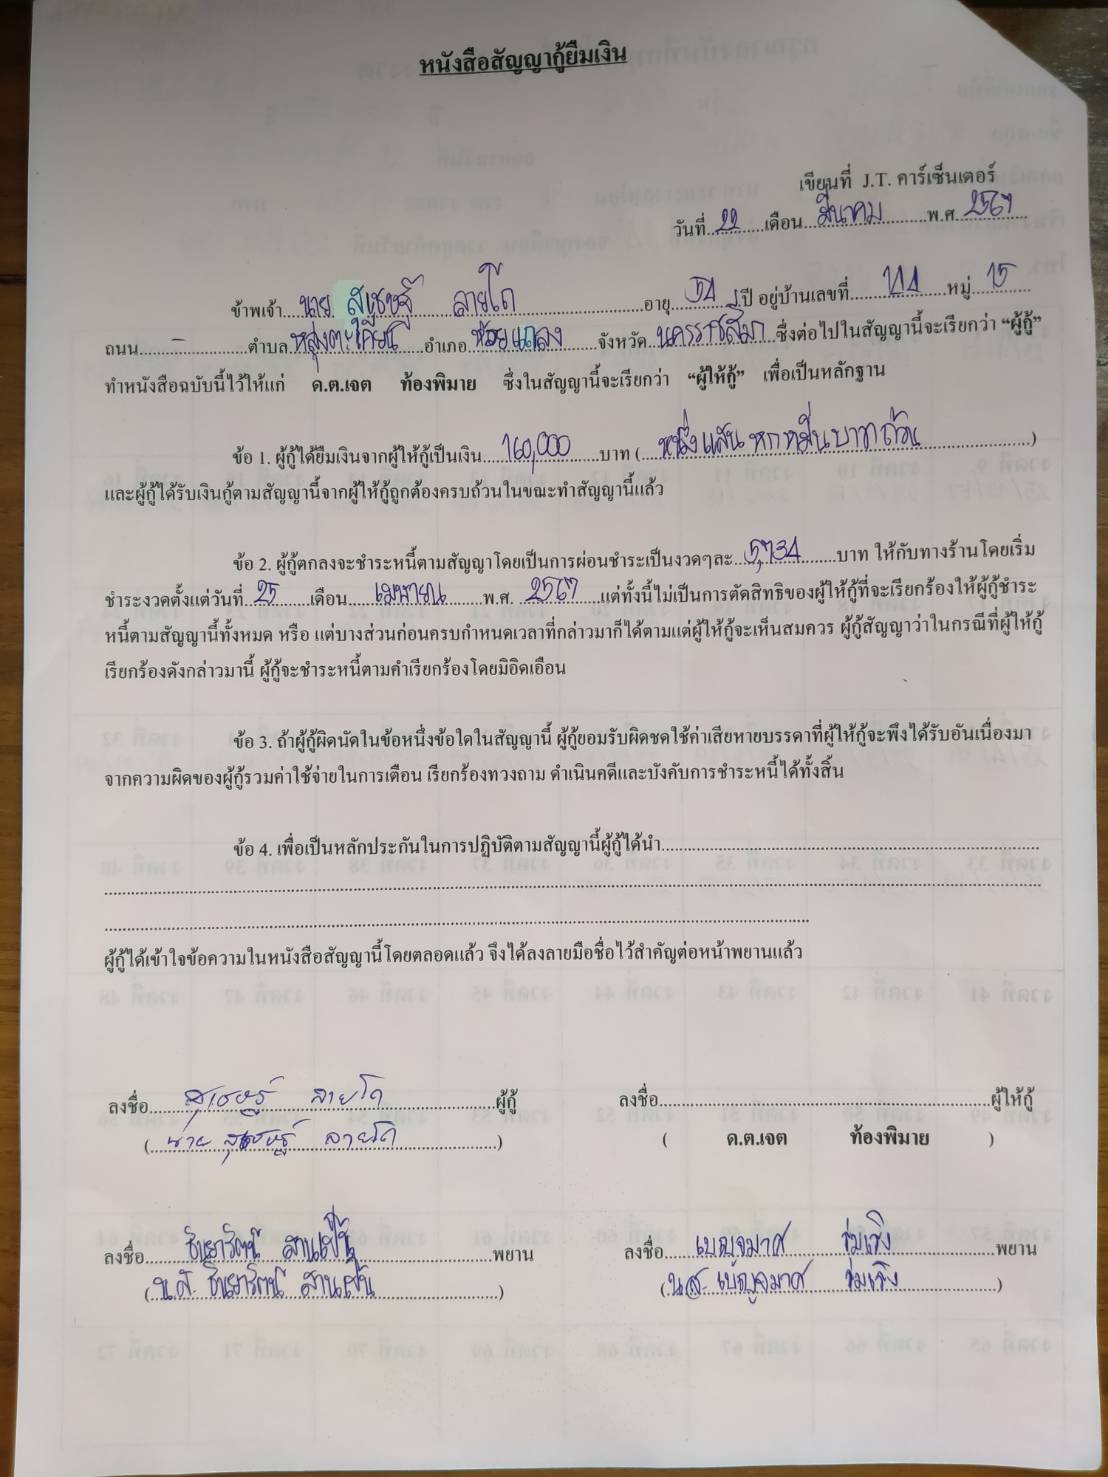 หนังสือสัญญากู้ยืมเงิน
เขียนที่ J.T. คาร์เซ็นเตอร์
วันที่ 22 เดือน มีนาคม พ.ศ. 2567
ข้าพเจ้า นาย สุเชษฐ์ ลายโถ อายุ 54 ปี อยู่บ้านเลขที่ 144 หมู่ 15
ถนน - ตำบล หลุ่งตะเคียน อำเภอ ห้วยแถลง จังหวัด นครราชสีมา ซึ่งต่อไปในสัญญานี้จะเรียกว่า “ผู้กู้”
ทำหนังสือฉบับนี้ไว้ให้แก่ ด.ต.เจต ท้องพิมาย ซึ่งในสัญญานี้จะเรียกว่า “ผู้ให้กู้” เพื่อเป็นหลักฐาน
ข้อ 1. ผู้กู้ได้ยืมเงินจากผู้ให้กู้เป็นเงิน 160,000 บาท ( หนึ่งแสนหกหมื่นบาทถ้วน )
และผู้กู้ได้รับเงินกู้ตามสัญญานี้จากผู้ให้กู้ถูกต้องครบถ้วนในขณะทำสัญญานี้แล้ว
ข้อ 2. ผู้กู้ตกลงจะชำระหนี้ตามสัญญาโดยเป็นการผ่อนชำระเป็นงวดๆละ 5,734 บาท ให้กับทางร้านโดยเริ่ม
ชำระงวดตั้งแต่วันที่ 25 เดือน เมษายน พ.ศ. 2567 แต่ทั้งนี้ไม่เป็นการตัดสิทธิของผู้ให้กู้ที่จะเรียกร้องให้ผู้กู้ชำระ
หนี้ตามสัญญานี้ทั้งหมด หรือ แต่บางส่วนก่อนครบกำหนดเวลาที่กล่าวมาก็ได้ตามแต่ผู้ให้กู้จะเห็นสมควร ผู้กู้สัญญาว่าในกรณีที่ผู้ให้กู้
เรียกร้องดังกล่าวมานี้ ผู้กู้จะชำระหนี้ตามคำเรียกร้องโดยมิอิดเอือน
ข้อ 3. ถ้าผู้กู้ผิดนัดในข้อหนึ่งข้อใดในสัญญานี้ ผู้กู้ยอมรับผิดชดใช้ค่าเสียหายบรรดาที่ผู้ให้กู้จะพึงได้รับอันเนื่องมา
จากความผิดของผู้กู้รวมค่าใช้จ่ายในการเตือน เรียกร้องทวงถาม ดำเนินคดีและบังคับการชำระหนี้ได้ทั้งสิ้น
ข้อ 4. เพื่อเป็นหลักประกันในการปฏิบัติตามสัญญานี้ผู้กู้ได้นำ
ผู้กู้ได้เข้าใจข้อความในหนังสือสัญญานี้โดยตลอดแล้ว จึงได้ลงลายมือชื่อไว้สำคัญต่อหน้าพยานแล้ว
ลงชื่อ สุเชษฐ์ ลายโถ ผู้กู้ ลงชื่อ ผู้ให้กู้
( นาย สุเชษฐ์ ลายโถ ) ( ด.ต.เจต ท้องพิมาย )
ลงชื่อ พยาน ลงชื่อ เบญจมาศ พยาน
( น.ส. ) ( น.ส. เบญจมาศ )